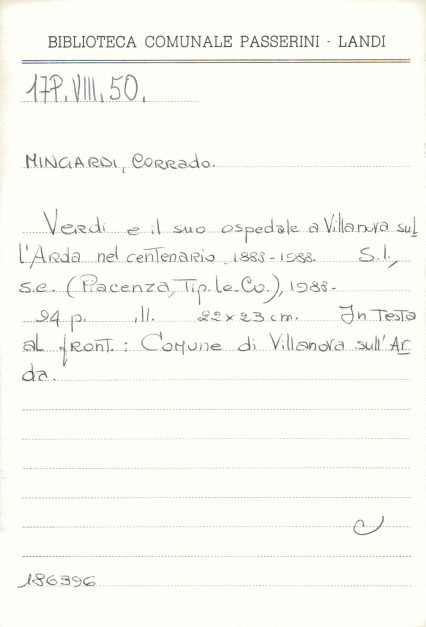 BIBLIOTECA COMUNALE PASSERINI - LANDI
17P.VIII.50.
MINGARDI, Corrado.
Verdi e il suo ospedale a Villanova sul
l'Arda nel centenario 1888-1988. S.l.,
s.e. (Piacenza, Tip. Le.Co.), 1988.
94 p. ill. 22x23 cm. In testa
al front.: Comune di Villanova sull'Ar
da.
186396